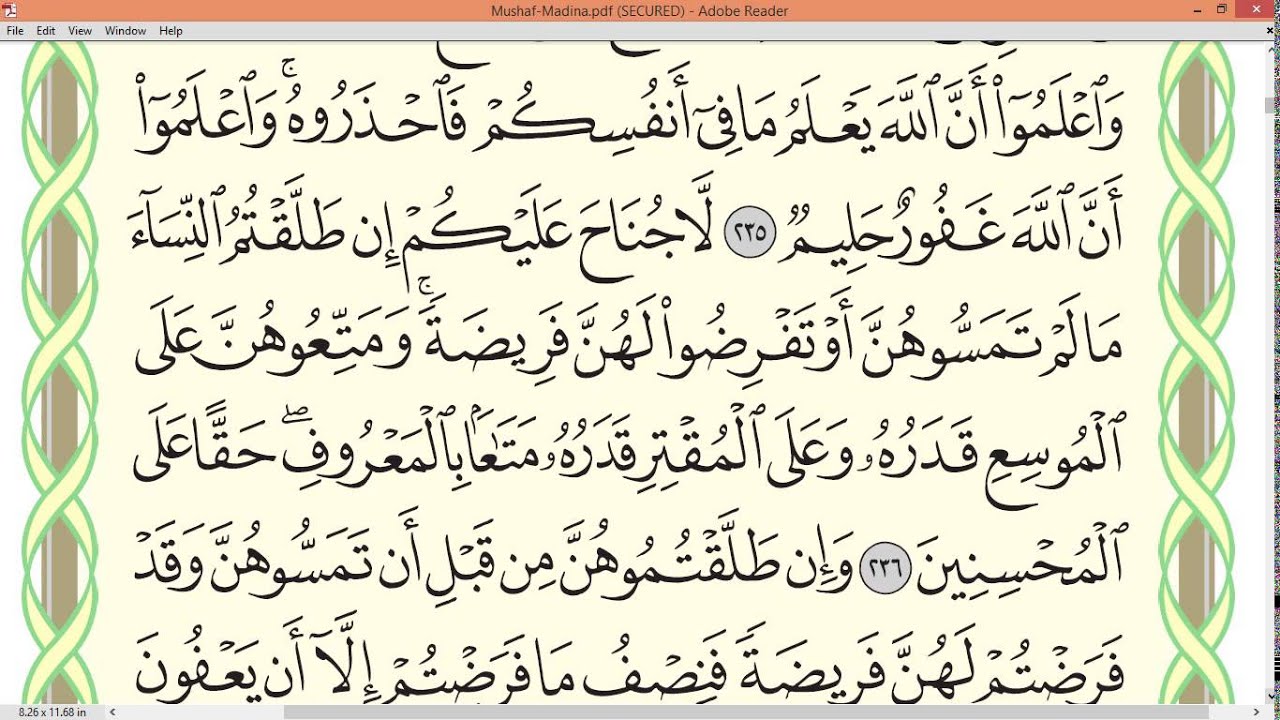 Mushaf-Madina.pdf (SECURED) - Adobe Reader
File Edit View Window Help
وَٱعۡلَمُوٓاْ أَنَّ ٱللَّهَ يَعۡلَمُ مَا فِيٓ أَنفُسِكُمۡ فَٱحۡذَرُوهُۚ وَٱعۡلَمُوٓاْ
أَنَّ ٱللَّهَ غَفُورٌ حَلِيمٞ ٢٣٥ لَّا جُنَاحَ عَلَيۡكُمۡ إِن طَلَّقۡتُمُ ٱلنِّسَآءَ
مَا لَمۡ تَمَسُّوهُنَّ أَوۡ تَفۡرِضُواْ لَهُنَّ فَرِيضَةٗۚ وَمَتِّعُوهُنَّ عَلَى
ٱلۡمُوسِعِ قَدَرُهُۥ وَعَلَى ٱلۡمُقۡتِرِ قَدَرُهُۥ مَتَٰعَۢا بِٱلۡمَعۡرُوفِۖ حَقًّا عَلَى
ٱلۡمُحۡسِنِينَ ٢٣٦ وَإِن طَلَّقۡتُمُوهُنَّ مِن قَبۡلِ أَن تَمَسُّوهُنَّ وَقَدۡ
فَرَضۡتُمۡ لَهُنَّ فَرِيضَةٗ فَنِصۡفُ مَا فَرَضۡتُمۡ إِلَّآ أَن يَعۡفُونَ
8.26 x 11.68 in